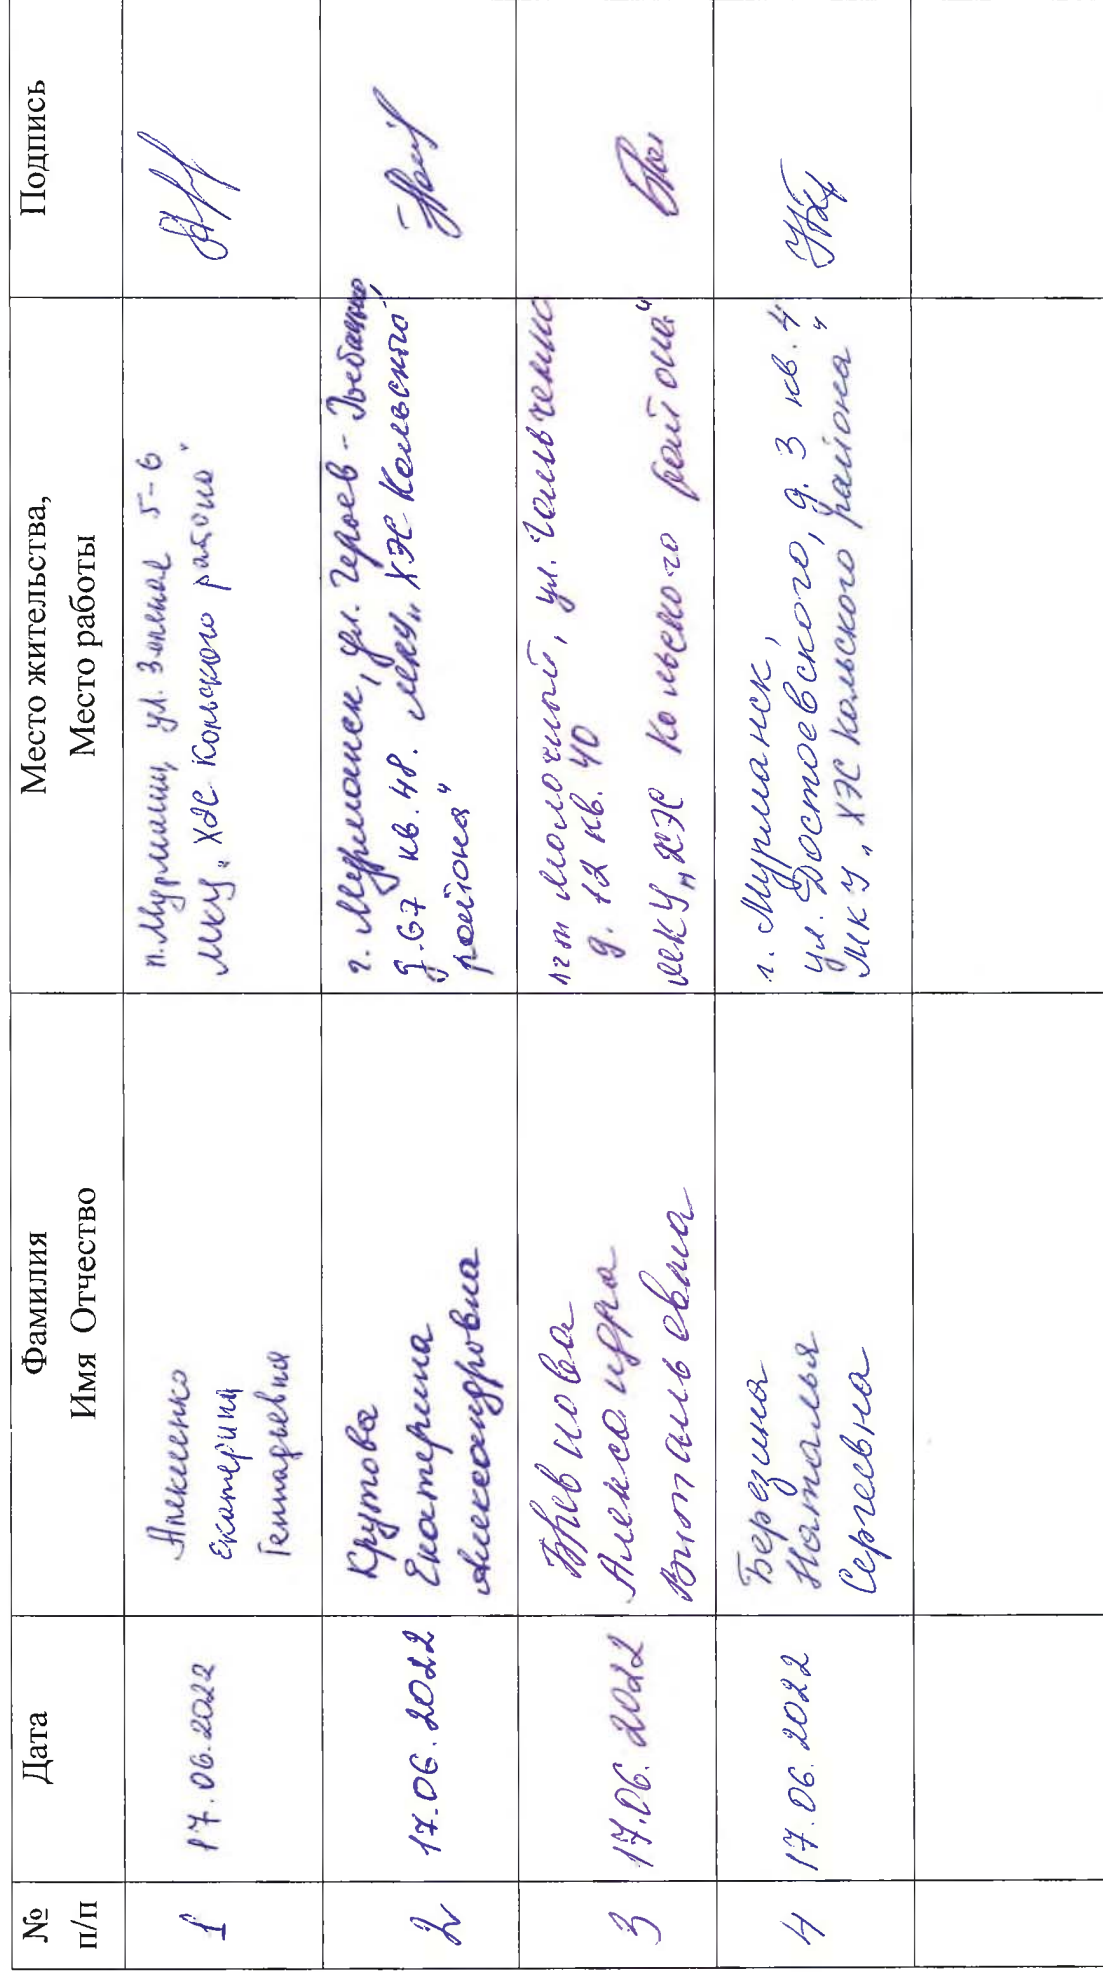 № п/п
Дата
Фамилия
Имя Отчество
Место жительства,
Место работы
Подпись
1
17.06.2022
Алексеенко
Екатерина
Геннадьевна
п. Мурмаши, ул. Зеленая 5-6
МКУ „ХЭС Кольского района"
2
17.06.2022
Крутова
Екатерина
Александровна
г. Мурманск, ул. Героев-
д. 67 кв. 48. МКУ „ХЭС Кольского
района"
3
17.06.2022
Александра
Витальевна
пгт Молочный, ул.
д. 12 кв. 40
МКУ „ХЭС Кольского района"
4
17.06.2022
Березина
Наталья
Сергеевна
г. Мурманск,
ул. Достоевского, д. 3 кв. 4
МКУ „ХЭС Кольского района"